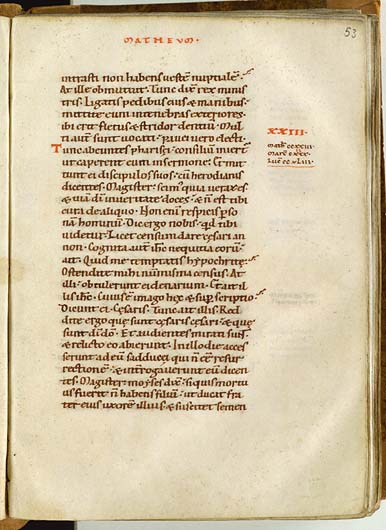 53
MATHEUM·
intrasti non habens uestem nuptialē·
At ille obmutuit. Tunc dix̄ rex minis
tris. Ligatis pedibus eius & manibus·
mittite eum intenebras exteriores·
ibi erit fletus & stridor dentiū. Mul
ti autem sunt uocati· pauci uero electi.
Tunc abeuntes pharisei· consiliū inierunt
ut caperent eum insermone· & mit
tunt ei discipulos suos· cum herodianis
dicentes. Magister· scimus quia uerax es·
& uiā dī inueritate doces· & non est tibi
cura de aliquo. Non enim respicis pso
nā hominum. Dic ergo nobis· quid tibi
uidetur. Licet censum dare cesari an
non. Cognita autem ihc nequitia eorum·
ait. Quid me temptatis hypochrite·
Ostendite mihi numisma census. At
illi· obtulerunt ei denarium. Et ait il
lis ihc. Cuius ē imago hęc & suprascriptio·
Dicunt ei· Cęsaris. Tunc ait illis. Red
dite ergo que sunt cęsaris cęsari· & quę
sunt dī dō. Et audientes mirati sunt·
& relicto eo abierunt. In illo die acces
serunt ad eum sadducei qui dicunt non esse resur
rectionē· & interrogauerunt eum dicen
tes. Magister· moyses dix̄· si quis mortu
us fuerit non habens filium· ut ducat fra
ter eius uxorem illius· & suscitet semen
XXIII·